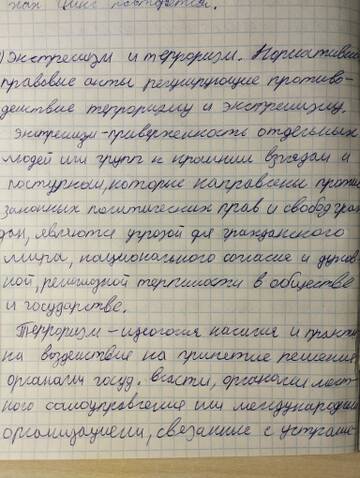 как цинк
) Экстремизм и терроризм. Нормативно
правовые акты регулирующие противо-
действие терроризму и экстремизму.
Экстремизм - приверженность отдельных
людей или групп к крайним взглядам и
поступкам, которые направлены против
законных политических прав и свобод граж
дан, являются угрозой для гражданского
мира, национального согласия и духов-
ной, религиозной терпимости в обществе
и государстве.
Терроризм - идеология насилия и практи
ка воздействие на принятие решения
органами госуд. власти, органами мест-
ного самоуправления или международными
организациями, связанные с устраше-